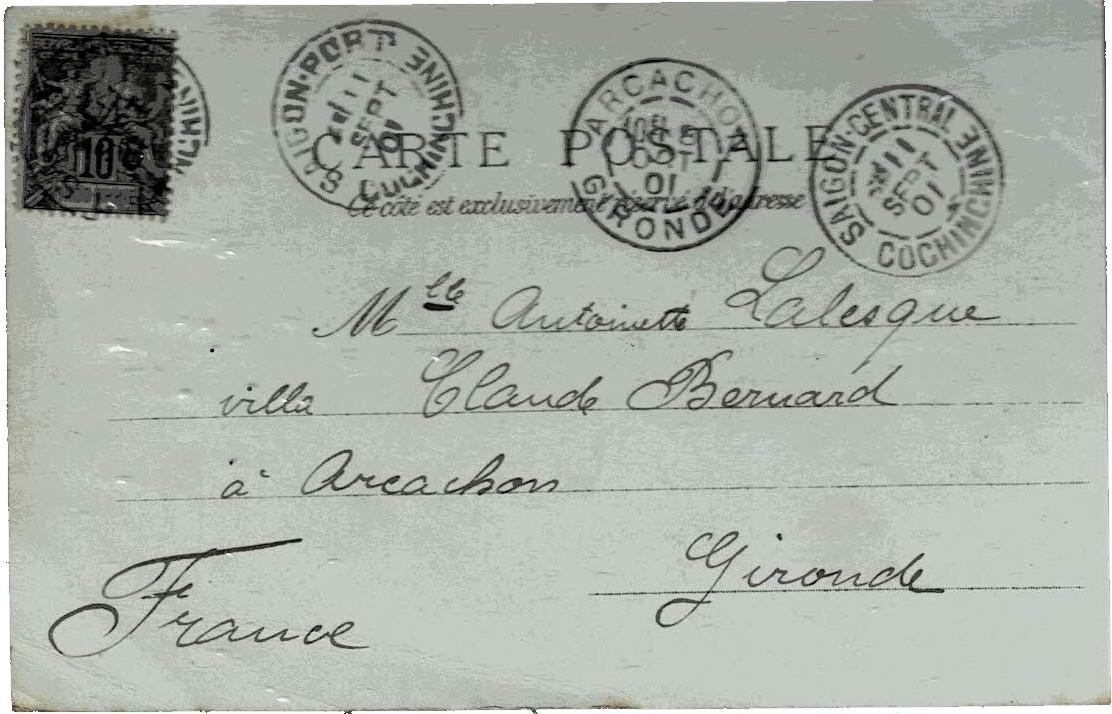 10
SAIGON-PORT
11
SEPT
01
COCHINCHINE
ARCACHON
OCT
01
GIRONDE
SAIGON-CENTRAL
11
SEPT
01
COCHINCHINE
CARTE POSTALE
Ce côté est exclusivement réservé à l'adresse
Mlle Antoinette Lalesque
villa Claude Bernard
à Arcachon
Gironde
France